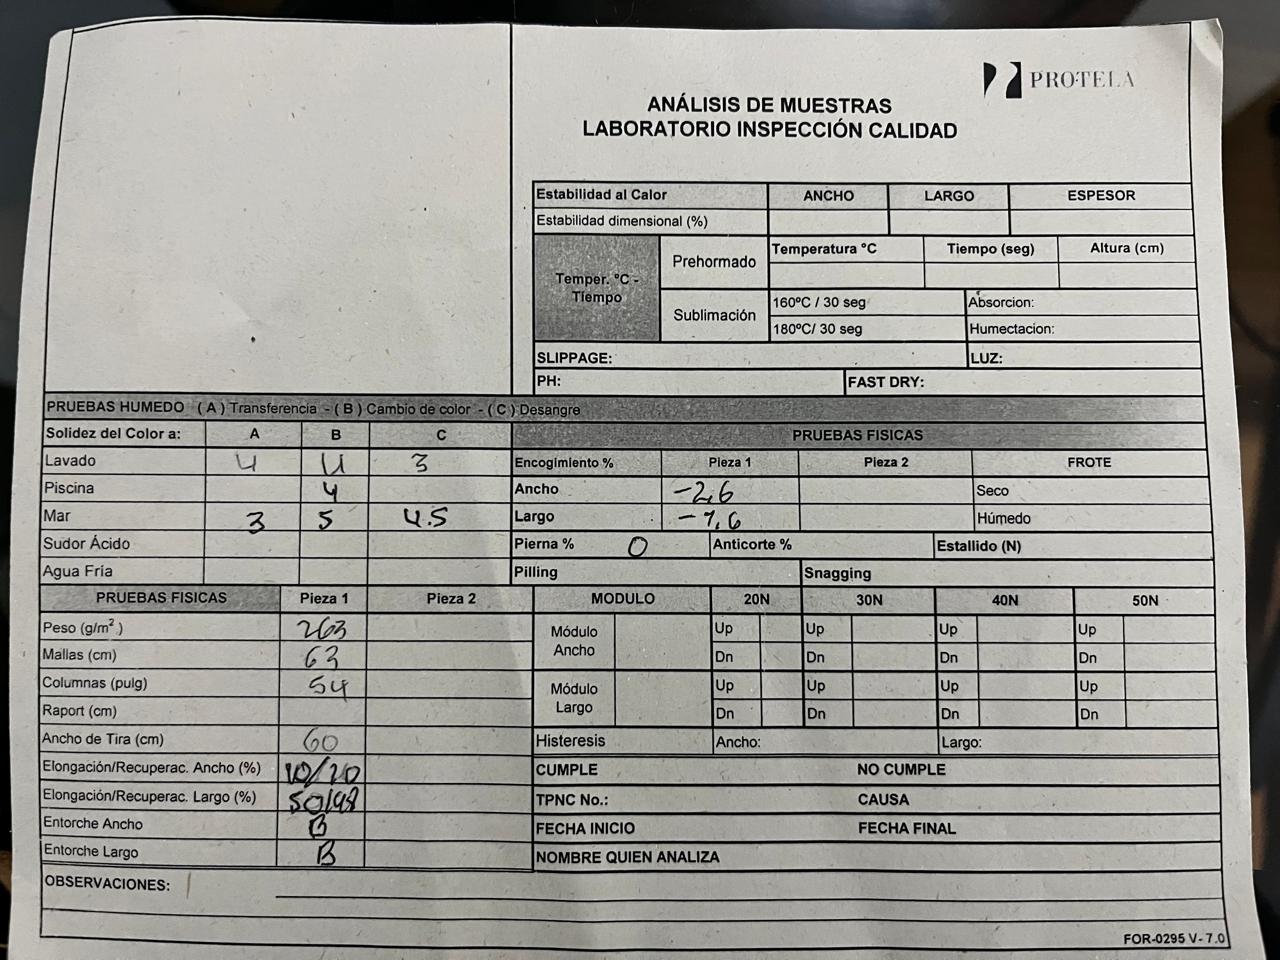 PROTELA
ANÁLISIS DE MUESTRAS
LABORATORIO INSPECCIÓN CALIDAD
Estabilidad al Calor ANCHO LARGO ESPESOR
Estabilidad dimensional (%)
Temper. ºC - Tiempo
Prehormado
Temperatura ºC Tiempo (seg) Altura (cm)
Sublimación
160ºC / 30 seg Absorcion:
180ºC/ 30 seg Humectacion:
SLIPPAGE: LUZ:
PH: FAST DRY:
PRUEBAS HUMEDO ( A ) Transferencia - ( B ) Cambio de color - ( C ) Desangre
Solidez del Color a: A B C
Lavado 4 4 3
Piscina 4
Mar 3 5 4.5
Sudor Ácido
Agua Fría
PRUEBAS FISICAS
Encogimiento % Pieza 1 Pieza 2 FROTE
Ancho -2,6 Seco
Largo Húmedo
Pierna % 0 Anticorte % Estallido (N)
Pilling Snagging
PRUEBAS FISICAS Pieza 1 Pieza 2
Peso (g/m²) 263
Mallas (cm) 63
Columnas (pulg) 54
Raport (cm)
Ancho de Tira (cm) 60
Elongación/Recuperac. Ancho (%)
Elongación/Recuperac. Largo (%) 50/98
Entorche Ancho B
Entorche Largo B
MODULO 20N 30N 40N 50N
Módulo Ancho
Up Up Up Up
Dn Dn Dn Dn
Módulo Largo
Up Up Up Up
Dn Dn Dn Dn
Histeresis Ancho: Largo:
CUMPLE NO CUMPLE
TPNC No.: CAUSA
FECHA INICIO FECHA FINAL
NOMBRE QUIEN ANALIZA
OBSERVACIONES:
FOR-0295 V- 7.0